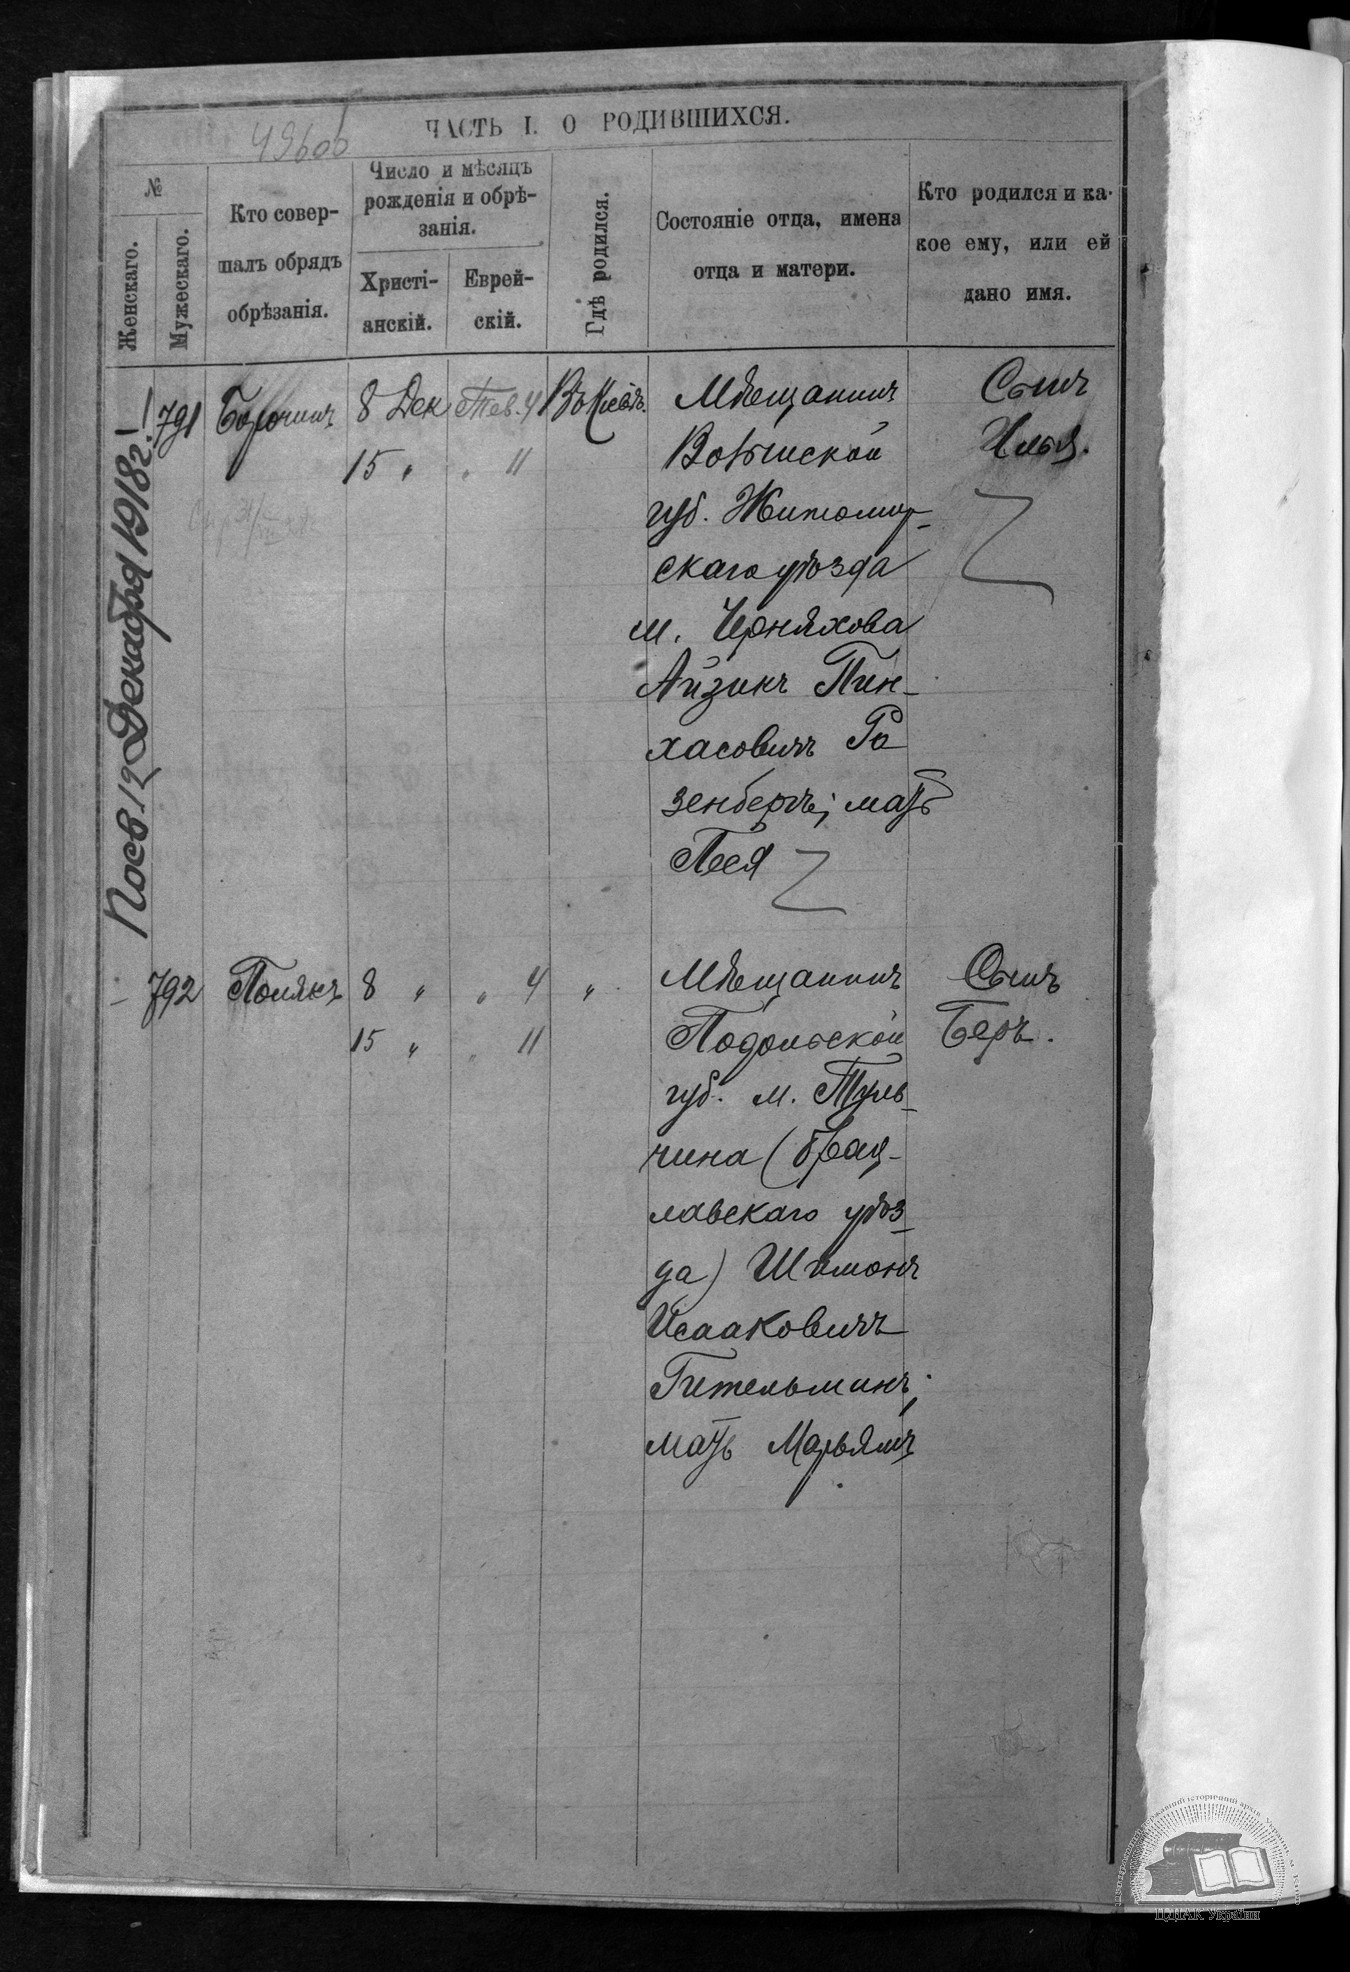 ЧАСТЬ I. О РОДИВШИХСЯ.
№
Женскаго.
Мужескаго.
Кто совер-
шалъ обрядъ
обрѣзанія.
Число и мѣсяцъ
рожденія и обрѣ-
занія.
Христі-
анскій.
Еврей-
скій.
Гдѣ родился.
Состояніе отца, имена
отца и матери.
Кто родился и ка-
кое ему, или ей
дано имя.
Декабря 1918 г.!
791
8 Дек
Тев. 4
Въ Кіевѣ.
15 „
„ 11
Мѣщанинъ
Волынской
губ. Житомір-
скаго уѣзда
м. Черняхова
Айзикъ Пин-
хасовичъ Ро
зенбергъ; мать
Песя
Сынъ
Илья.
792
Полякъ
8 „
„ 4
„
15 „
„ 11
Мѣщанинъ
Подольской
губ. м. Туль-
чина (Брац-
лавскаго уѣз-
да) Шимонъ
Исааковичъ
Гительманъ;
мать Марьямъ
Сынъ
Беръ.
ЦДІАК України